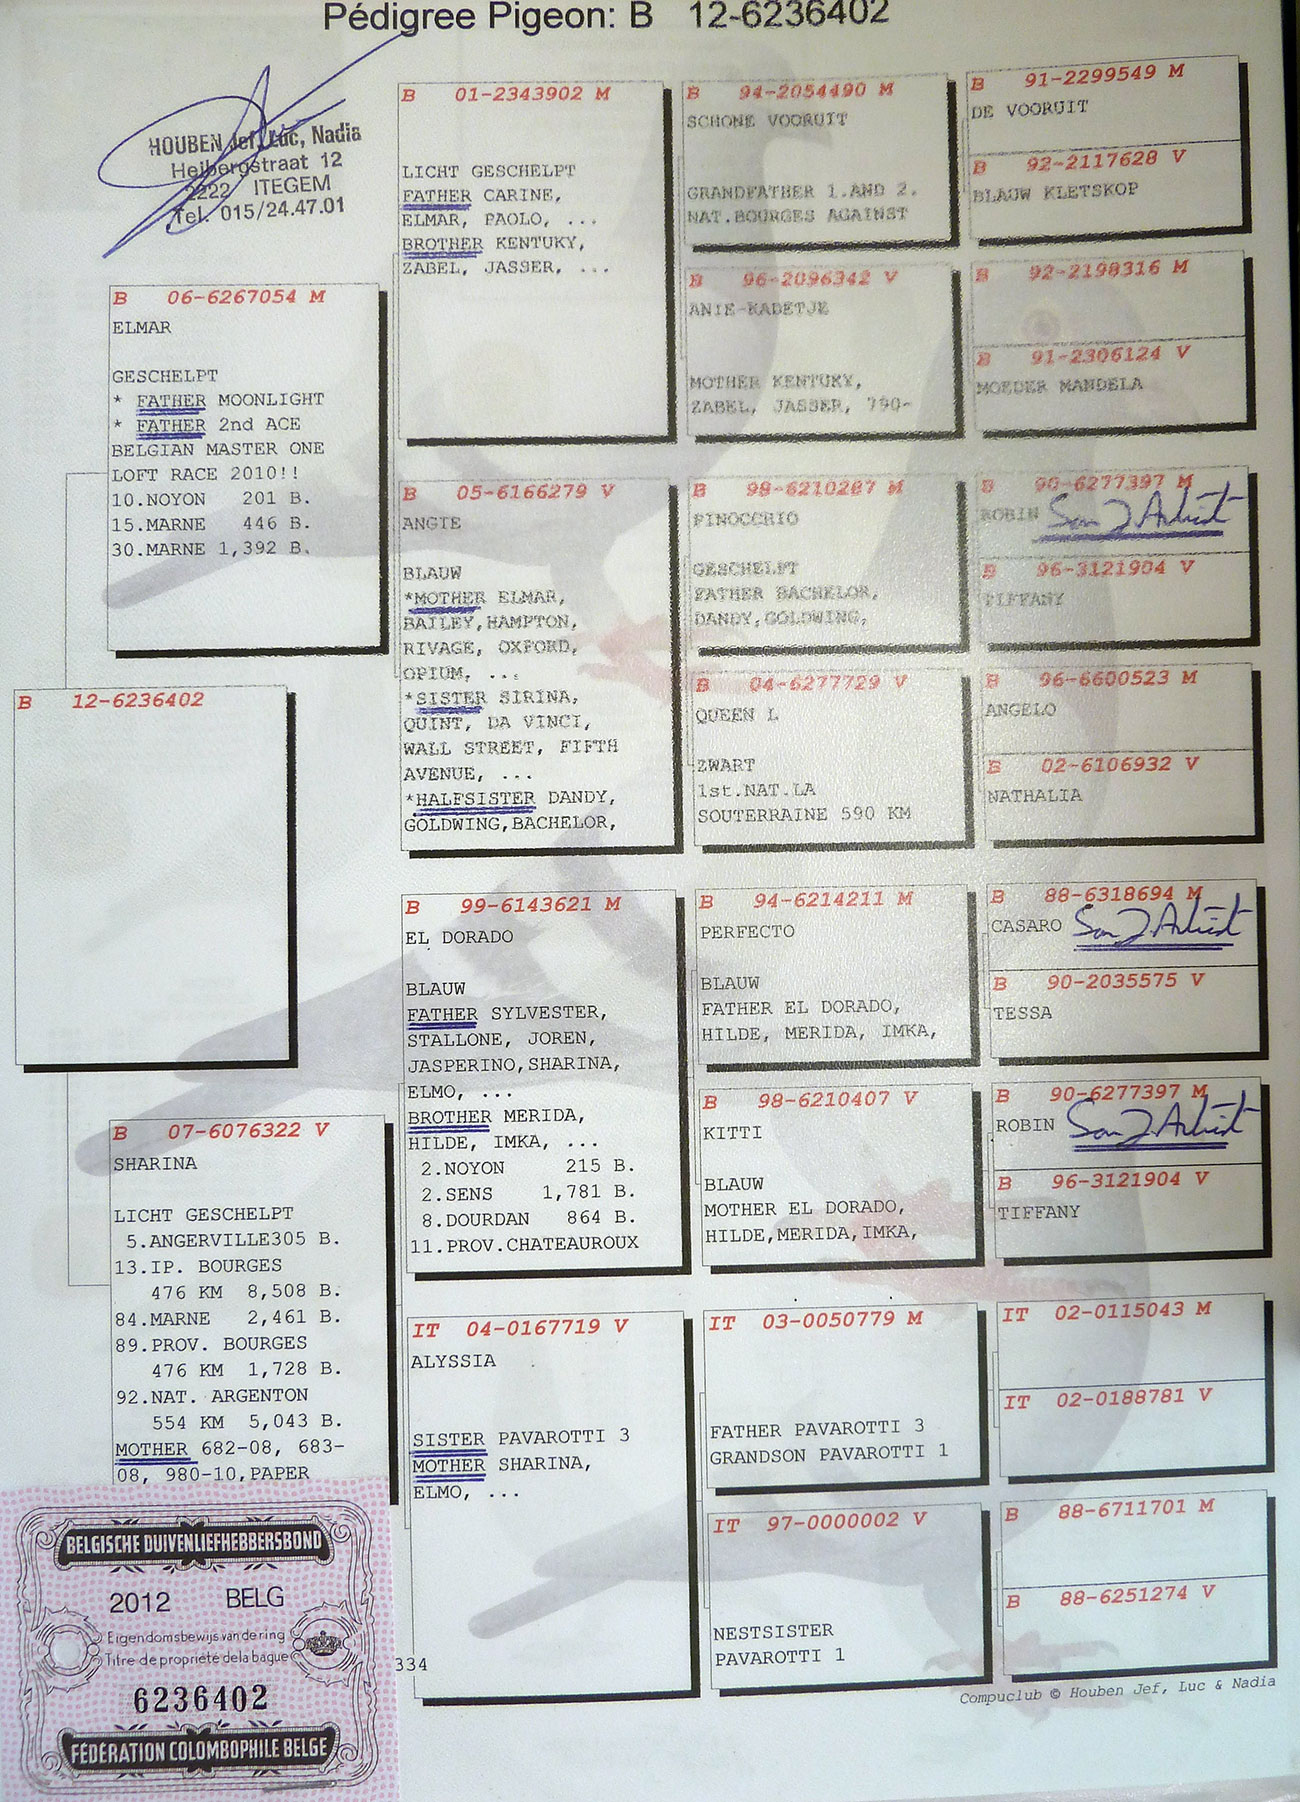 Pédigree Pigeon: B 12-6236402
HOUBEN Jef, Luc, Nadia
Heibergstraat 12
2222 ITEGEM
Tel. 015/24.47.01
B 06-6267054 M
ELMAR
GESCHELPT
* FATHER MOONLIGHT
* FATHER 2nd ACE
BELGIAN MASTER ONE
LOFT RACE 2010!!
10.NOYON 201 B.
15.MARNE 446 B.
30.MARNE 1,392 B.
B 12-6236402
B 07-6076322 V
SHARINA
LICHT GESCHELPT
5.ANGERVILLE305 B.
13.IP. BOURGES
476 KM 8,508 B.
84.MARNE 2,461 B.
89.PROV. BOURGES
476 KM 1,728 B.
92.NAT. ARGENTON
554 KM 5,043 B.
MOTHER 682-08, 683-
08, 980-10,PAPER
B 01-2343902 M
LICHT GESCHELPT
FATHER CARINE,
ELMAR, PAOLO, ...
BROTHER KENTUKY,
ZABEL, JASSER, ...
B 05-6166279 V
ANGIE
BLAUW
*MOTHER ELMAR,
BAILEY,HAMPTON,
RIVAGE, OXFORD,
OPIUM, ...
*SISTER SIRINA,
QUINT, DA VINCI,
WALL STREET, FIFTH
AVENUE, ...
*HALFSISTER DANDY,
GOLDWING,BACHELOR,
B 99-6143621 M
EL DORADO
BLAUW
FATHER SYLVESTER,
STALLONE, JOREN,
JASPERINO,SHARINA,
ELMO, ...
BROTHER MERIDA,
HILDE, IMKA, ...
2.NOYON 215 B.
2.SENS 1,781 B.
8.DOURDAN 864 B.
11.PROV.CHATEAUROUX
IT 04-0167719 V
ALYSSIA
SISTER PAVAROTTI 3
MOTHER SHARINA,
ELMO, ...
B 94-2054490 M
SCHONE VOORUIT
GRANDFATHER 1.AND 2.
NAT.BOURGES AGAINST
B 96-2096342 V
ANIE-KADETJE
MOTHER KENTUKY,
ZABEL, JASSER, 790-
B 98-6210287 M
PINOCCHIO
GESCHELPT
FATHER BACHELOR,
DANDY,GOLDWING,
B 04-6277729 V
QUEEN L
ZWART
1st.NAT.LA
SOUTERRAINE 590 KM
B 94-6214211 M
PERFECTO
BLAUW
FATHER EL DORADO,
HILDE, MERIDA, IMKA,
B 98-6210407 V
KITTI
BLAUW
MOTHER EL DORADO,
HILDE,MERIDA,IMKA,
IT 03-0050779 M
FATHER PAVAROTTI 3
GRANDSON PAVAROTTI 1
IT 97-0000002 V
NESTSISTER
PAVAROTTI 1
B 91-2299549 M
DE VOORUIT
B 92-2117628 V
BLAUW KLETSKOP
B 92-2198316 M
B 91-2306124 V
MOEDER MANDELA
B 90-6277397 M
ROBIN Son J. Artist
B 96-3121904 V
TIFFANY
B 96-6600523 M
ANGELO
B 02-6106932 V
NATHALIA
B 88-6318694 M
CASARO Son J. Artist
B 90-2035575 V
TESSA
B 90-6277397 M
ROBIN Son J. Artist
B 96-3121904 V
TIFFANY
IT 02-0115043 M
IT 02-0188781 V
B 88-6711701 M
B 88-6251274 V
334
Compuclub © Houben Jef, Luc & Nadia
BELGISCHE DUIVENLIEFHEBBERSBOND
2012 BELG
Eigendomsbewijs van de ring
Titre de propriété de la bague
6236402
FÉDÉRATION COLOMBOPHILE BELGE